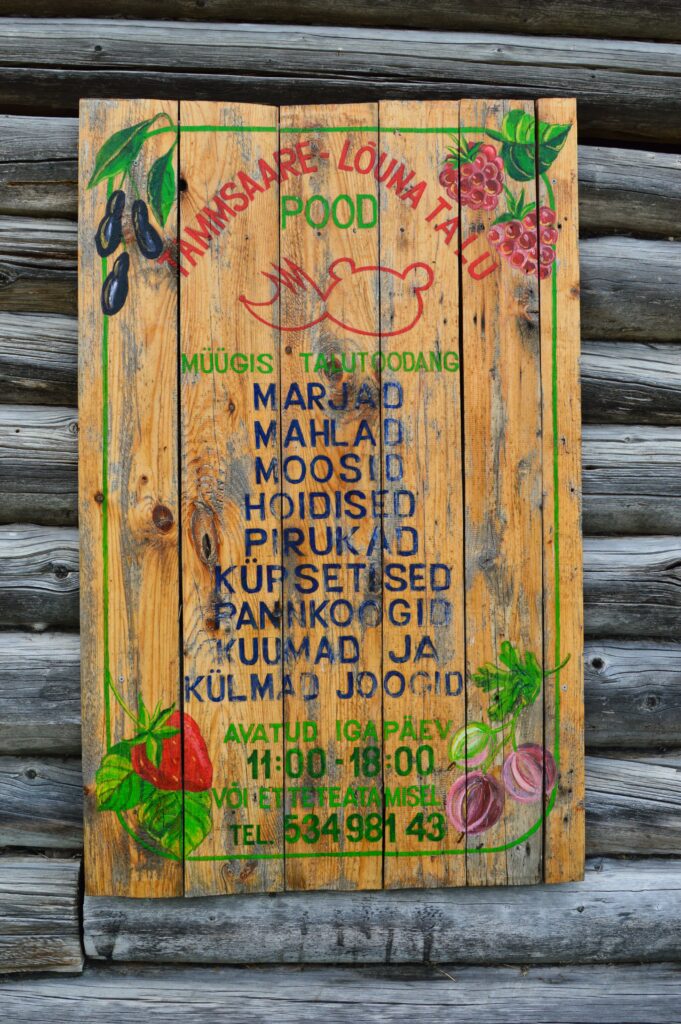 TAMMSAARE-LÕUNA TALU
POOD
MÜÜGIS TALUTOODANG
MARJAD
MAHLAD
MOOSID
HOIDISED
PIRUKAD
KÜPSETISED
PANNKOOGID
KUUMAD JA
KÜLMAD JOOGID
AVATUD IGAPÄEV
11:00-18:00
VÕI ETTETEATAMISEL
TEL. 534 981 43